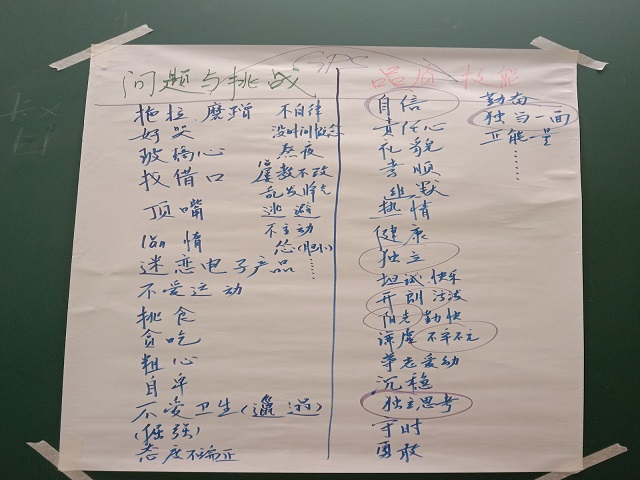 问题与挑战
拖拉 磨蹭
好哭
玻璃心
找借口
顶嘴
懒惰
迷恋电子产品
不爱运动
挑食
贪吃
粗心
自卑
不爱卫生(邋遢)
(倔强)
态度不端正
不自律
没时间概念
熬夜
屡教不改
乱发脾气
逃避
不主动
怂(胆小)
……
品质 技能
自信
责任心
礼貌
孝顺
幽默
热情
健康
独立
坦诚 快乐
开朗 活泼
阳光 勤快
谦虚 不卑不亢
尊老爱幼
沉稳
独立思考
守时
勇敢
勤奋
独当一面
正能量
……